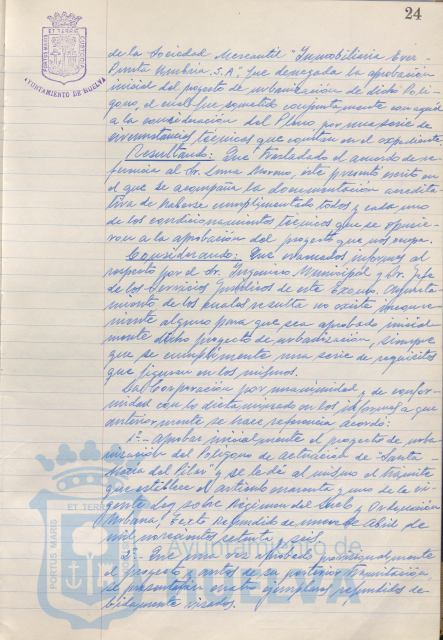 24
PORTUS MARIS ET TERRAE CUSTODIA
AYUNTAMIENTO DE HUELVA
de la Sociedad Mercantil "Inmobiliaria Ever-
Punta Umbría S.A." fue denegada la aprobación
inicial del proyecto de urbanización de dicho Polí-
gono, el cual fue sometido conjuntamente con aquel
a la consideración del Pleno, por una serie de
circunstancias técnicas que constan en el expediente.
Resultando: Que trasladado el acuerdo de re-
ferencia al Sr. Moreno, este presentó escrito en
el que se acompaña la documentación acredita-
tiva de haberse cumplimentado todos y cada uno
de los condicionamientos técnicos que se opusie-
ron a la aprobación del proyecto que nos ocupa.
Considerando: Que evacuados informes al
respecto por el Sr. Ingeniero Municipal y Sr. Jefe
de los Servicios Jurídicos de este Excmo. Ayunta-
miento de los cuales resulta no existe inconve-
niente alguno para que sea aprobado inicial
mente dicho proyecto de urbanización, siempre
que se cumplimente una serie de requisitos
que figuran en los mismos.
La Corporación por unanimidad y de confor-
midad con lo dictaminado en los informes a que
anteriormente se hace referencia acordó:
1º.- Aprobar inicialmente el proyecto de urba
nización del Polígono de actuación de "Santa
María del Pilar" y se le dé al mismo el trámite
que establece el artículo cuarenta y uno de la vi-
gente Ley sobre Régimen del Suelo y Ordenación
Urbana, Texto Refundido de nueve de Abril de
mil novecientos setenta y seis.
2º.- Que una vez aprobado provisionalmente
el proyecto y antes de su posterior tramitación,
se presentarán cuatro ejemplares refundidos de-
bidamente visados.
PORTUS MARIS ET TERRAE
Ayuntamiento de
HUELVA